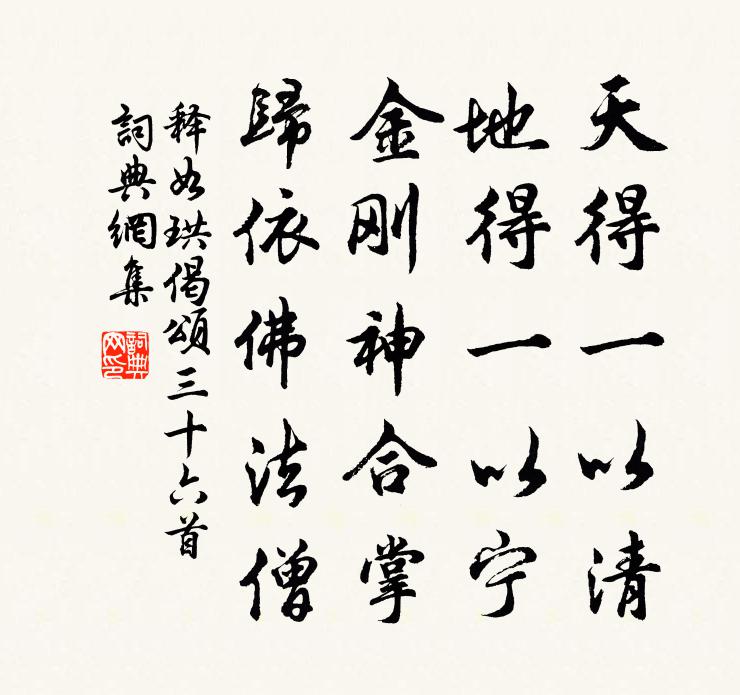 天得一以清
地得一以宁
金刚神合掌
歸依佛法僧
释如珙偈頌三十六首
詞典網集
詞典网印